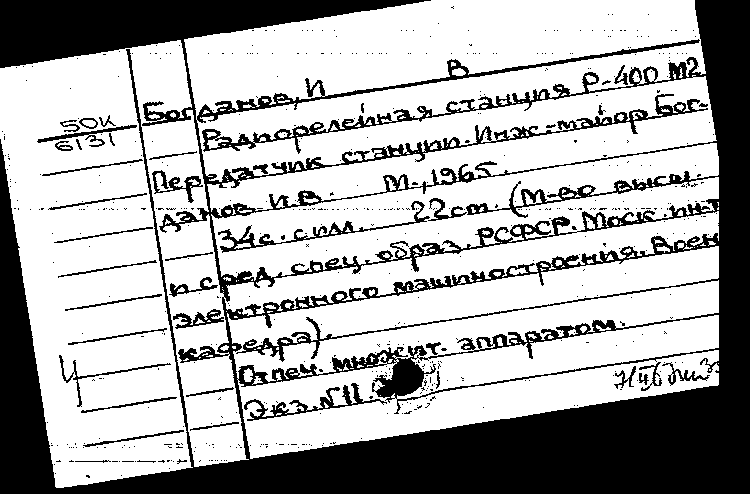 Богданов, И В
50К
6131
Радиорелейная станция Р-400 М2
Передатчик станции. Инж.-майор Бог-
данов И.В. М., 1965.
34с. с илл. 22cm. (М-во высш.
и сред. спец. образ. РСФСР. Моск. ин-т
электронного машиностроения. Воен
кафедра).
Отпеч. множит. аппаратом.
Экз. №11.
Ч